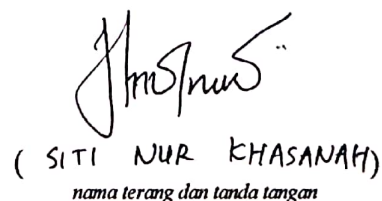 ( SITI NUR KHASANAH)
nama terang dan tanda tangan